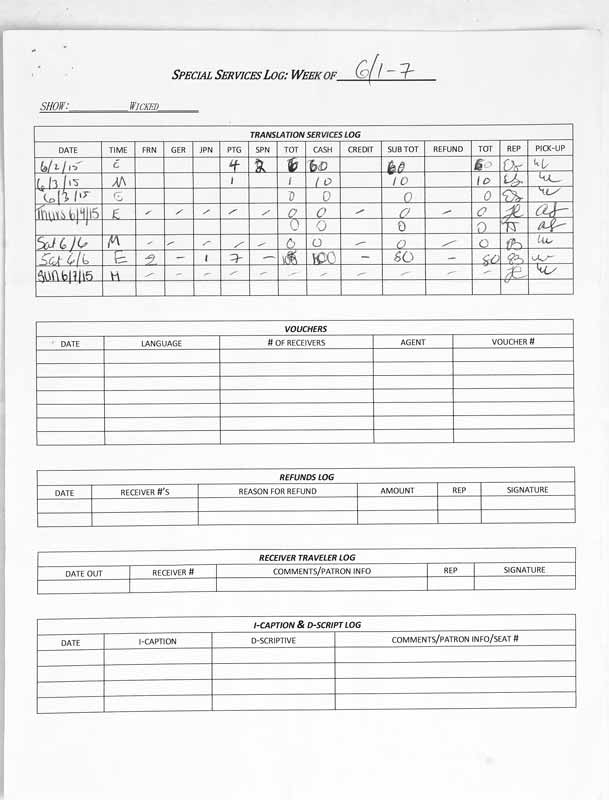 SPECIAL SERVICES LOG: WEEK OF 6/1-7
SHOW: WICKED
TRANSLATION SERVICES LOG
DATE TIME FRN GER JPN PTG SPN TOT CASH CREDIT SUB TOT REFUND TOT REP PICK-UP
6/2/15 E 4 2 6 60 60 60
6/3/15 M 1 1 10 10 10
6/3/15 E 0 0 0 0
Thurs 6/4/15 E - - - - - 0 0 - 0 - 0
0 0 0 0
Sat 6/6 M - - - - - 0 0 - 0 - 0
Sat 6/6 E 2 - 1 7 - - 80 80
SUN 6/7/15 M - - - - - - - - - - -
VOUCHERS
DATE LANGUAGE # OF RECEIVERS AGENT VOUCHER #
REFUNDS LOG
DATE RECEIVER #'S REASON FOR REFUND AMOUNT REP SIGNATURE
RECEIVER TRAVELER LOG
DATE OUT RECEIVER # COMMENTS/PATRON INFO REP SIGNATURE
I-CAPTION & D-SCRIPT LOG
DATE I-CAPTION D-SCRIPTIVE COMMENTS/PATRON INFO/SEAT #